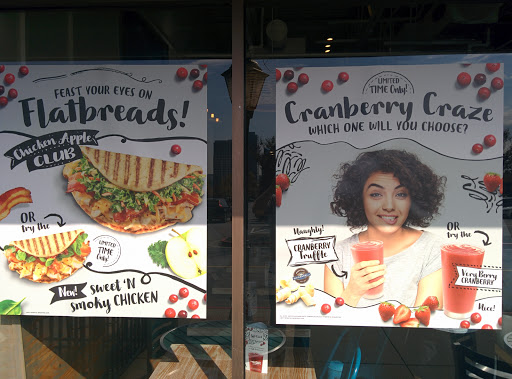 FEAST YOUR EYES ON
Flatbreads!
Chicken Apple
CLUB
OR
try the
LIMITED
TIME Only!
New! Sweet 'N
smoky CHICKEN
LIMITED
TIME Only!
Cranberry Craze
WHICH ONE WILL YOU CHOOSE?
Naughty!
CRANBERRY
Truffle
OR
try the
Very Berry
CRANBERRY
Nice!